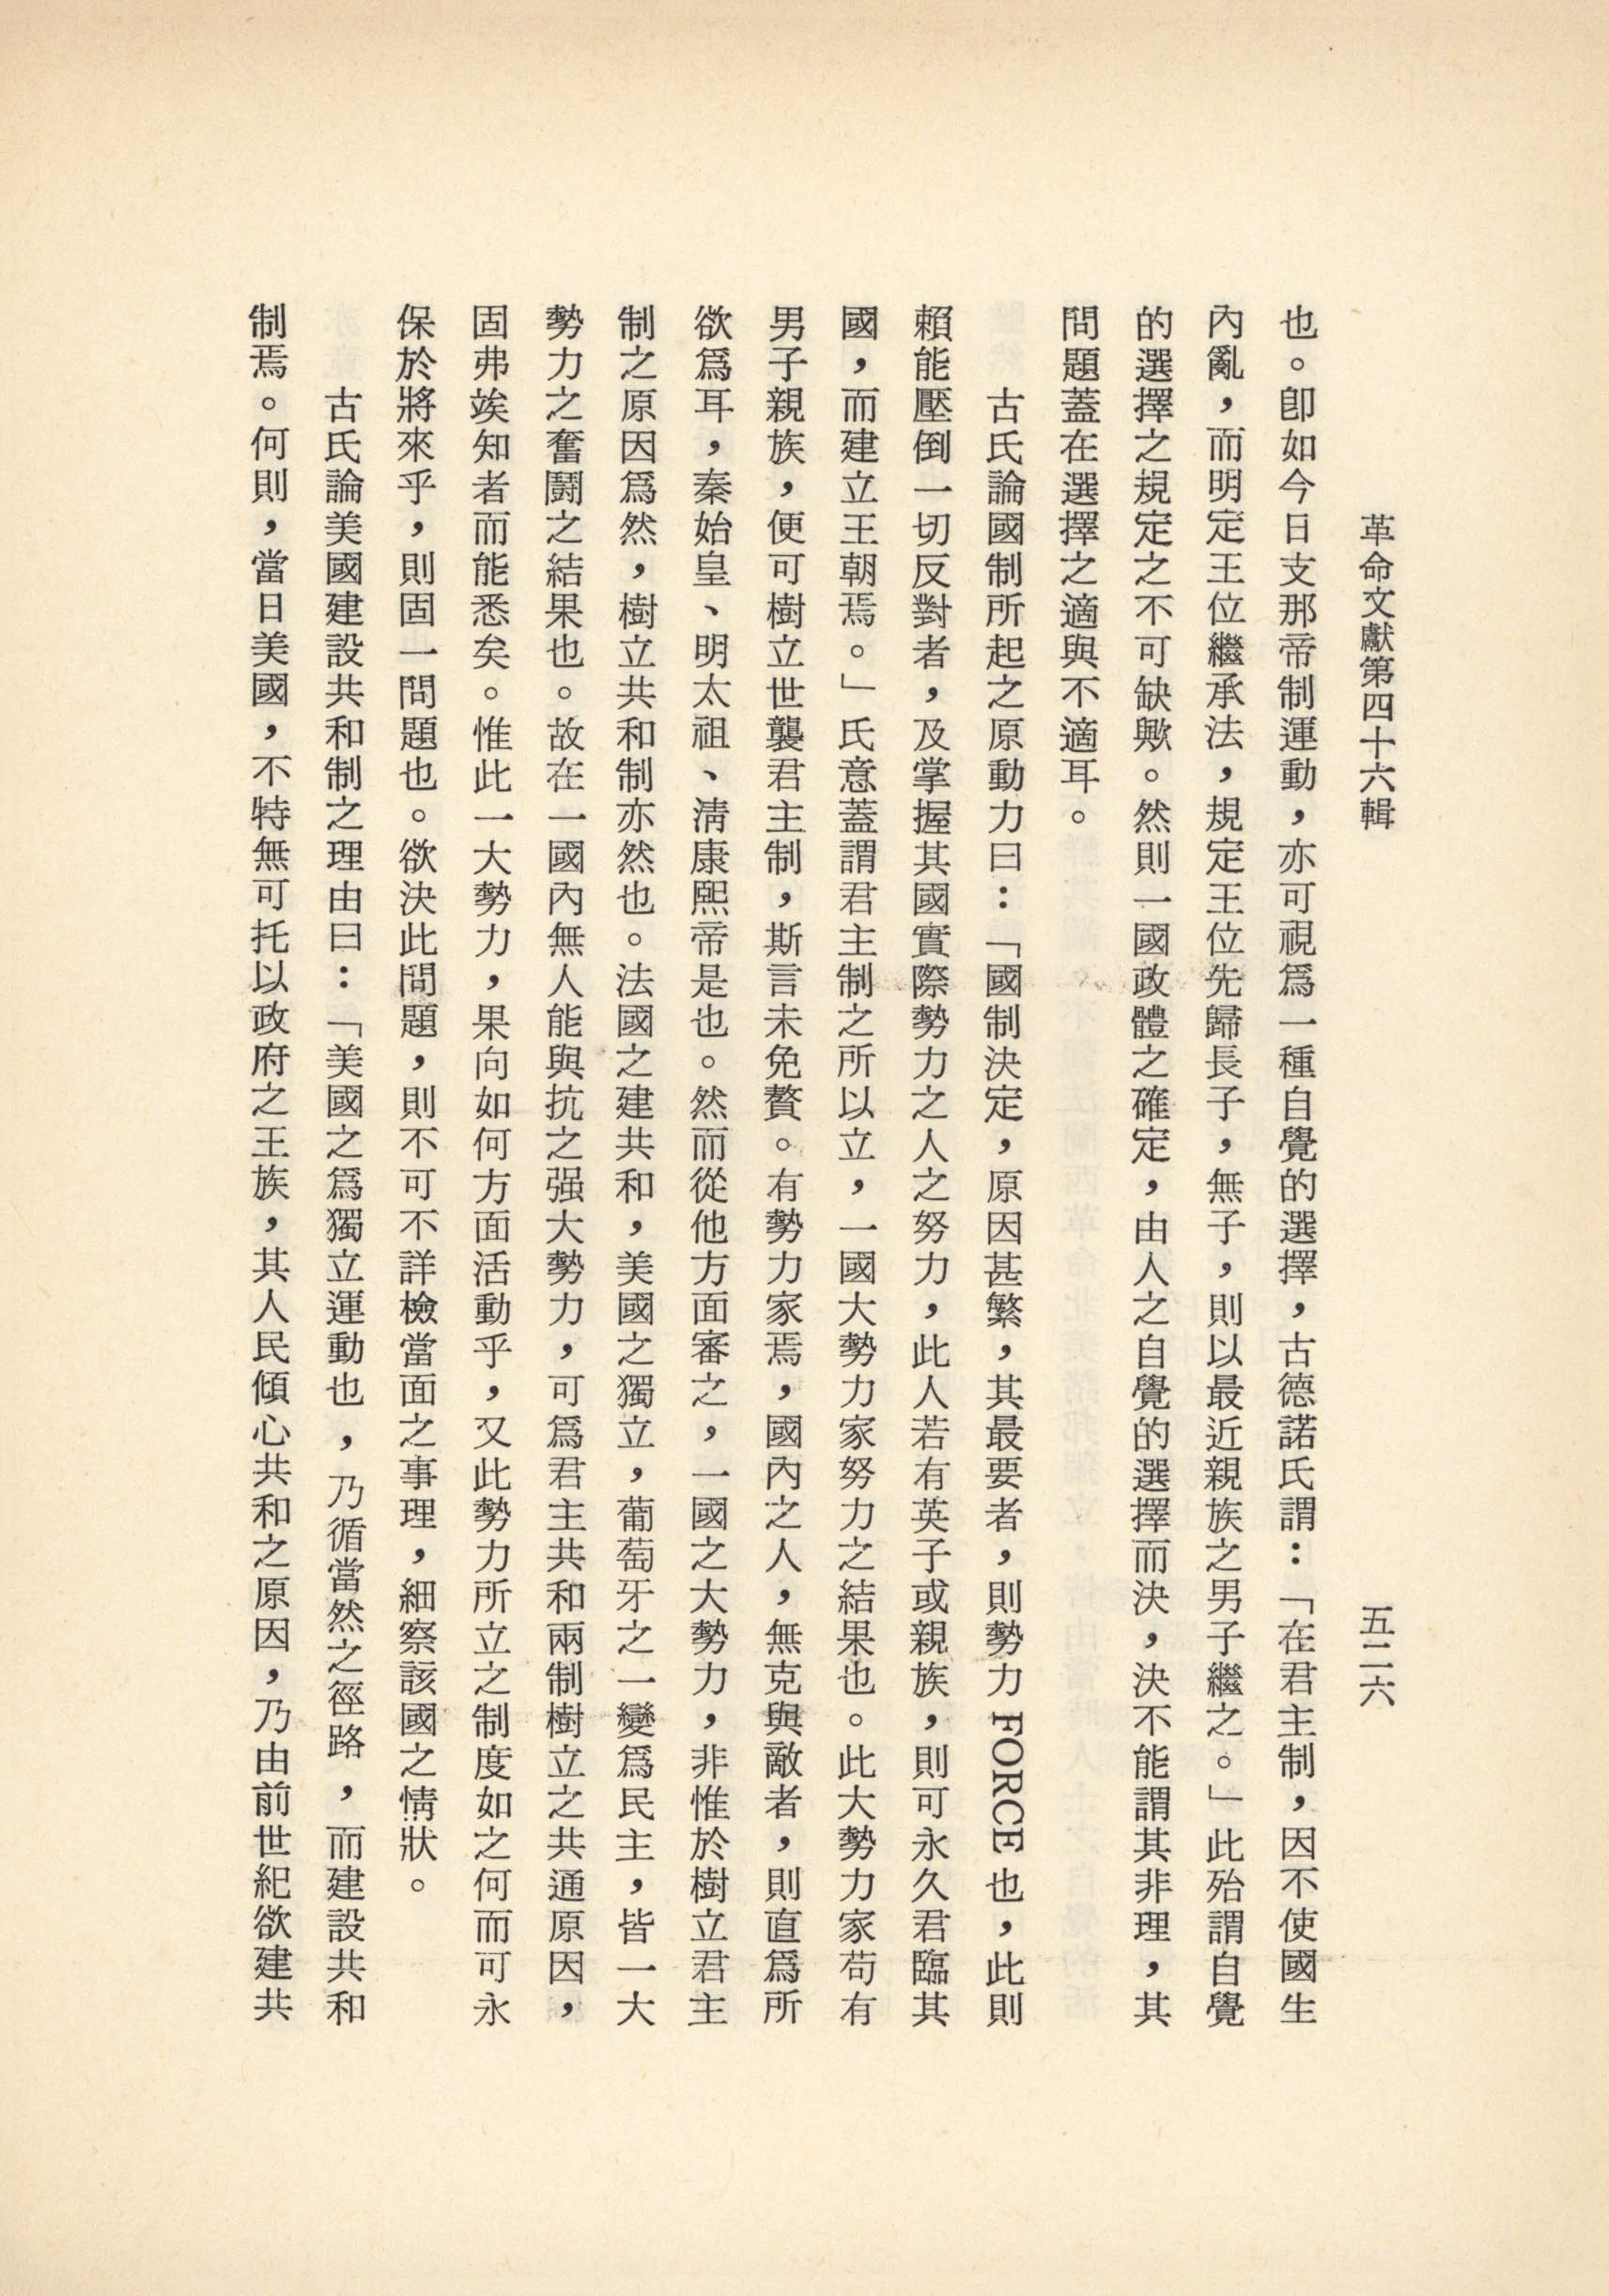 革命文獻第四十六輯
五二六
也。卽如今日支那帝制運動，亦可視爲一種自覺的選擇，古德諾氏謂：「在君主制，因不使國生
內亂，而明定王位繼承法，規定王位先歸長子，無子，則以最近親族之男子繼之。」此殆謂自覺
的選擇之規定之不可缺歟。然則一國政體之確定，由人之自覺的選擇而決，決不能謂其非理，其
問題蓋在選擇之適與不適耳。
古氏論國制所起之原動力曰：「國制決定，原因甚繁，其最要者，則勢力 FORCE 也，此則
賴能壓倒一切反對者，及掌握其國實際勢力之人之努力，此人若有英子或親族，則可永久君臨其
國，而建立王朝焉。」氏意蓋謂君主制之所以立，一國大勢力家努力之結果也。此大勢力家苟有
男子親族，便可樹立世襲君主制，斯言未免贅。有勢力家焉，國內之人，無克與敵者，則直爲所
欲爲耳，秦始皇、明太祖、淸康熙帝是也。然而從他方面審之，一國之大勢力，非惟於樹立君主
制之原因爲然，樹立共和制亦然也。法國之建共和，美國之獨立，葡萄牙之一變爲民主，皆一大
勢力之奮鬪之結果也。故在一國內無人能與抗之强大勢力，可爲君主共和兩制樹立之共通原因，
固弗竢知者而能悉矣。惟此一大勢力，果向如何方面活動乎，又此勢力所立之制度如之何而可永
保於將來乎，則固一問題也。欲決此問題，則不可不詳檢當面之事理，細察該國之情狀。
古氏論美國建設共和制之理由曰：「美國之爲獨立運動也，乃循當然之徑路，而建設共和
制焉。何則，當日美國，不特無可托以政府之王族，其人民傾心共和之原因，乃由前世紀欲建共